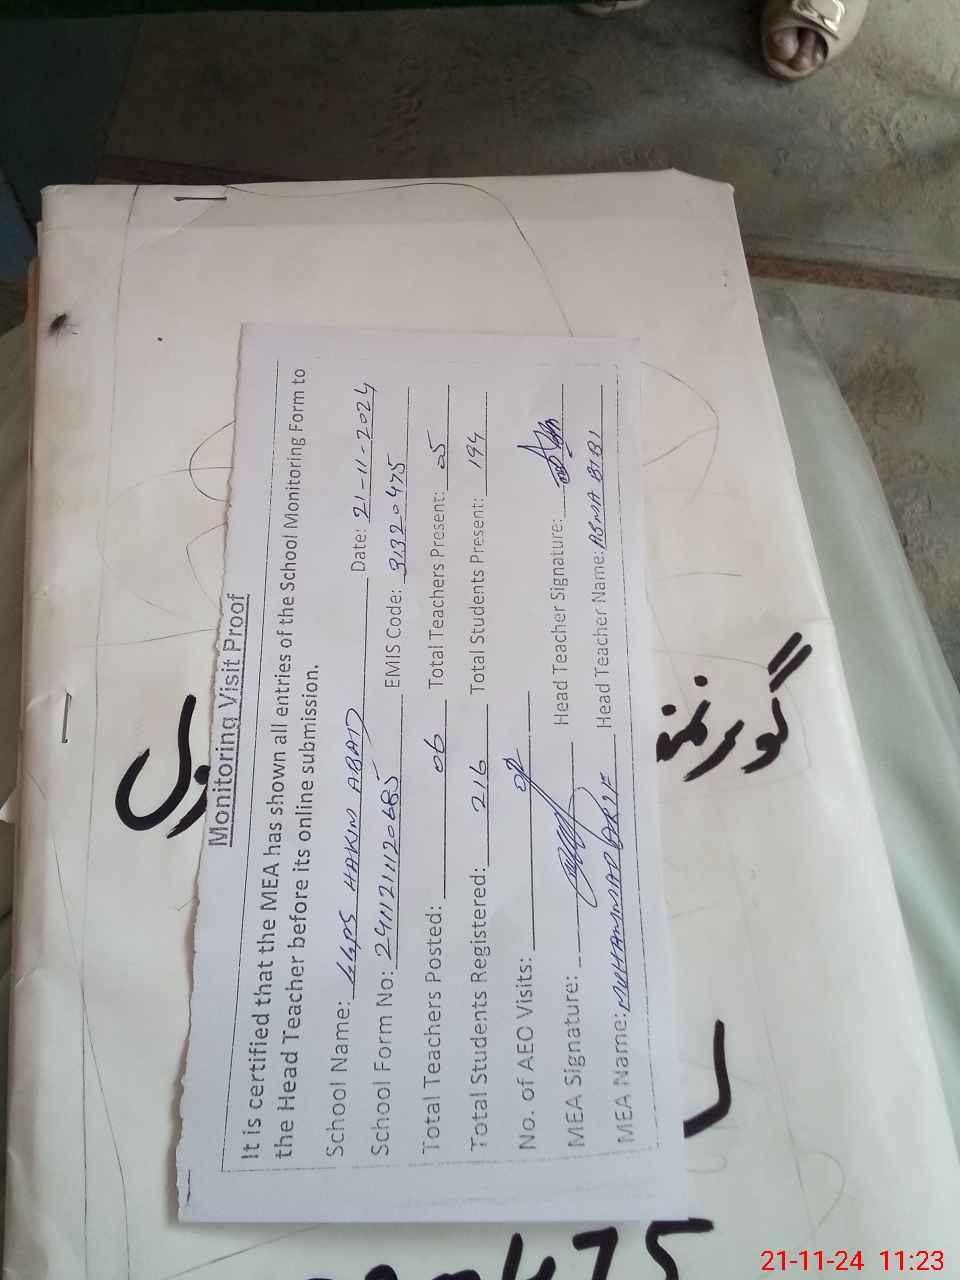 Monitoring Visit Proof
It is certified that the MEA has shown all entries of the School Monitoring Form to
the Head Teacher before its online submission.
School Name: GGPS HAKIM ABAD Date: 21-11-2024
School Form No: 241121120685 EMIS Code: 31320475
Total Teachers Posted: 06 Total Teachers Present: 05
Total Students Registered: 216 Total Students Present: 194
No. of AEO Visits: 02
MEA Signature: Head Teacher Signature:
MEA Name: MUHAMMAD ARIF Head Teacher Name: ASMA BIBI
گورنمنٹ
475
21-11-24 11:23